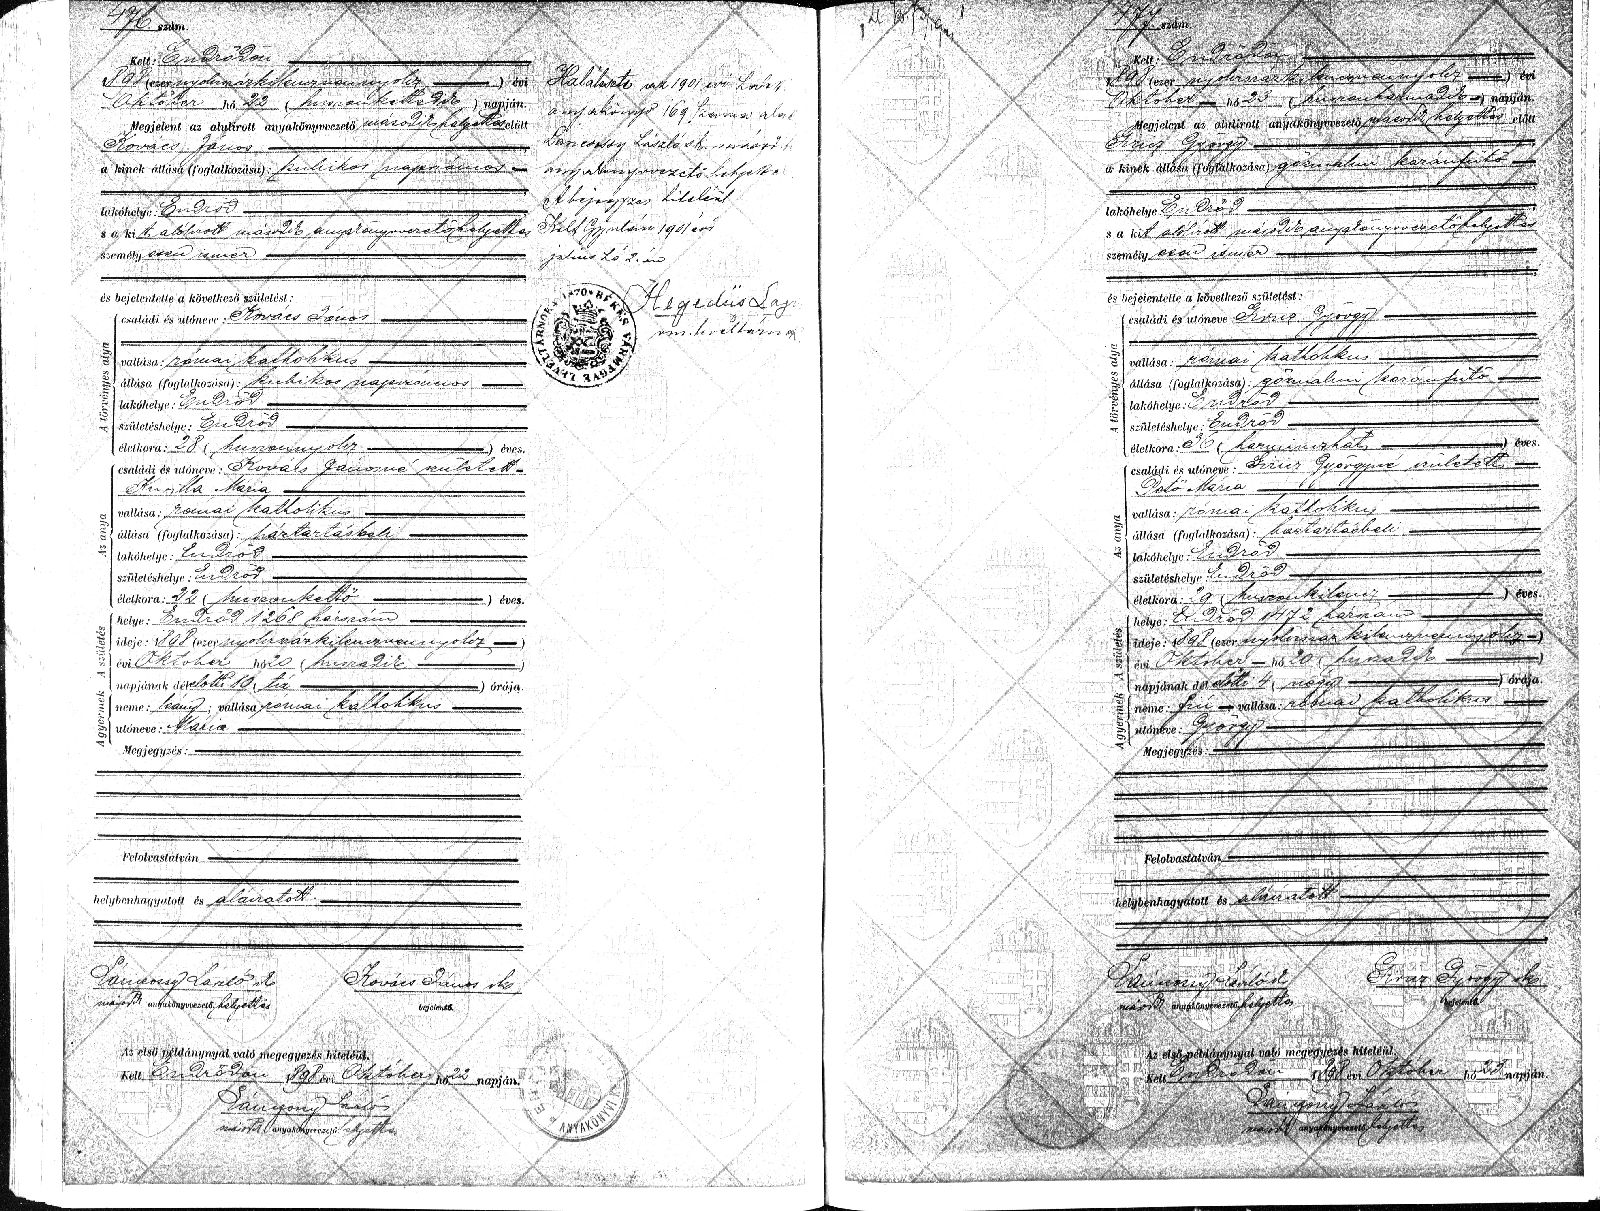 476. szám.
Kelt: Endrődön
1898 (ezer nyolcszázkilenczvennyolcz) évi
Október hó 22 (huszonkettedik) napján.
Megjelent az alulirott anyakönyvvezető második helyettes előtt
Kovács János
a kinek állása (foglalkozása): kubikos napszámos
lakóhelye: Endrőd
s a kit alólirott második anyakönyvvezetőhelyettes
személyesen ismer
és bejelentette a következő születést:
A törvényes atya
családi és utóneve: Kovács János
vallása: római katholikus
állása (foglalkozása): kubikos napszámos
lakóhelye: Endrőd
születéshelye: Endrőd
életkora: 28 (huszonnyolcz) éves.
Az anya
családi és utóneve: Kovács Jánosné született
Mária
vallása: római katholikus
állása (foglalkozása): háztartásbeli
lakóhelye: Endrőd
születéshelye: Endrőd
életkora: 22 (huszonkettő) éves.
A születés
helye: Endrőd 1268 házszám
ideje: 1898 (ezer nyolcszázkilenczvennyolcz)
évi Október hó 20 (huszadik)
napjának délelőtti 10 (tíz) órája.
A gyermek
neme: leány; vallása római katholikus
utóneve: Mária
Megjegyzés:
Felolvastatván
helybenhagyatott és aláiratott.
László sk Kovács János sk.
második anyakönyvvezető helyettes bejelentő.
Az első példánynyal való megegyezés hiteléül.
Kelt Endrődön 1898 évi Október hó 22 napján.
László
második anyakönyvvezető helyettes
Halálozta az 1901 évi
anyakönyv 169 szám alatt
László sk. második
anyakönyvvezető helyettes
A bejegyzés hiteléül
Kelt Gyulán 1901 évi
2.án
Hegedüs
BÉKÉS VÁRMEGYE LEVÉLTÁRNOK 1870
ANYAKÖNYVI
477. szám.
Kelt: Endrődön
1898 (ezer nyolcszázkilenczvennyolcz) évi
Október hó 23 (huszonharmadik) napján.
Megjelent az alulirott anyakönyvvezető második helyettes előtt
György
a kinek állása (foglalkozása): gőzmalmi kazánfűtő
lakóhelye Endrőd
s a kit alólirott második anyakönyvvezetőhelyettes
személyesen ismer
és bejelentette a következő születést:
A törvényes atya
családi és utóneve György
vallása: római katholikus
állása (foglalkozása): gőzmalmi kazánfűtő
lakóhelye: Endrőd
születéshelye: Endrőd
életkora: 36 (harminczhat) éves.
Az anya
családi és utóneve: Györgyné született
Mária
vallása: római katholikus
állása (foglalkozása): háztartásbeli
lakóhelye: Endrőd
születéshelye: Endrőd
életkora: 29 (huszonkilencz) éves.
A születés
helye: Endrőd 1472 házszám
ideje: 1898 (ezer nyolcszáz kilenczvennyolcz)
évi Október hó 20 (huszadik)
napjának délelőtti 4 (négy) órája.
A gyermek
neme: fiu vallása: római katholikus
utóneve: György
Megjegyzés:
Felolvastatván
helybenhagyatott és aláiratott
László sk György sk.
második anyakönyvvezető helyettes bejelentő.
Az első példánynyal való megegyezés hiteléül.
Kelt Endrődön 1898 évi Október hó 23 napján.
László
második anyakönyvvezető helyettes